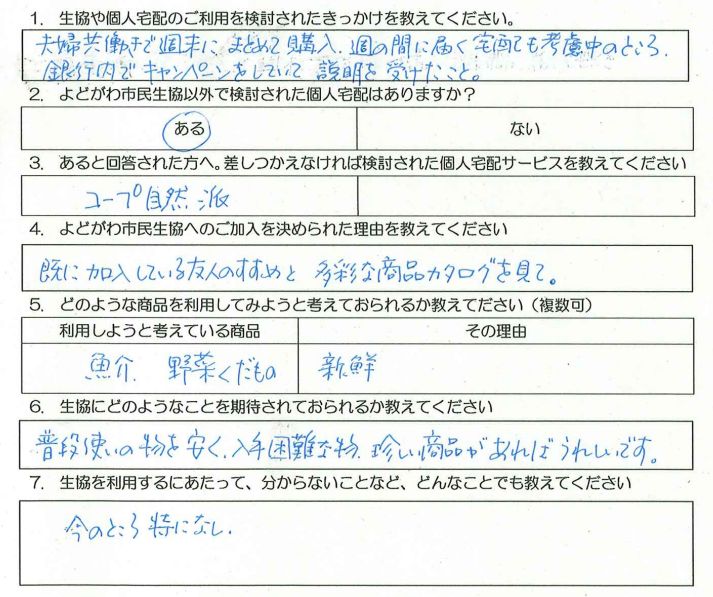 1. 生協や個人宅配のご利用を検討されたきっかけを教えてください。
夫婦共働きで週末にまとめて購入、週の間に届く宅配も考慮中のところ、
銀行内でキャンペーンをしていて説明を受けたこと。
2. よどがわ市民生協以外で検討された個人宅配はありますか？
ある ない
3. あると回答された方へ。差しつかえなければ検討された個人宅配サービスを教えてください
コープ自然派
4. よどがわ市民生協へのご加入を決められた理由を教えてください
既に加入している友人のすすめと 多彩な商品カタログを見て。
5. どのような商品を利用してみようと考えておられるか教えてださい（複数可）
利用しようと考えている商品 その理由
魚介、野菜くだもの 新鮮
6. 生協にどのようなことを期待されておられるか教えてください
普段使いの物を安く、入手困難な物、珍しい商品があればうれしいです。
7. 生協を利用するにあたって、分からないことなど、どんなことでも教えてください
今のところ特になし.